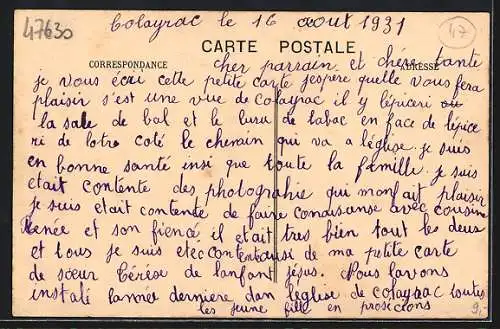 47630
Colayrac le 16 aout 1931
47
CARTE POSTALE
CORRESPONDANCE
ADRESSE
cher parrain et chère tante
je vous écri cette petite carte jespere quelle vous fera
plaisir s'est une vue de Colayrac il y lépiceri ou
la sale de bal et le buru de tabac en face de lépice
ri de lotre coté le chemin qui va a léglise. je suis
en bonne santé insi que toute la famille. je suis
etait contente des photograhie qui monfait plaisir
je suis etait contente de faire conaisanse avec cousine
Renée et son fiencé il était tres bien tout les deux
et tous je suis etec contentausi de ma petite carte
de sœur Térèse de lanfant jésus. Nous lavons
instalé lannée derniere dan léglise de colayrac toutes
les jeune fille en prosicions